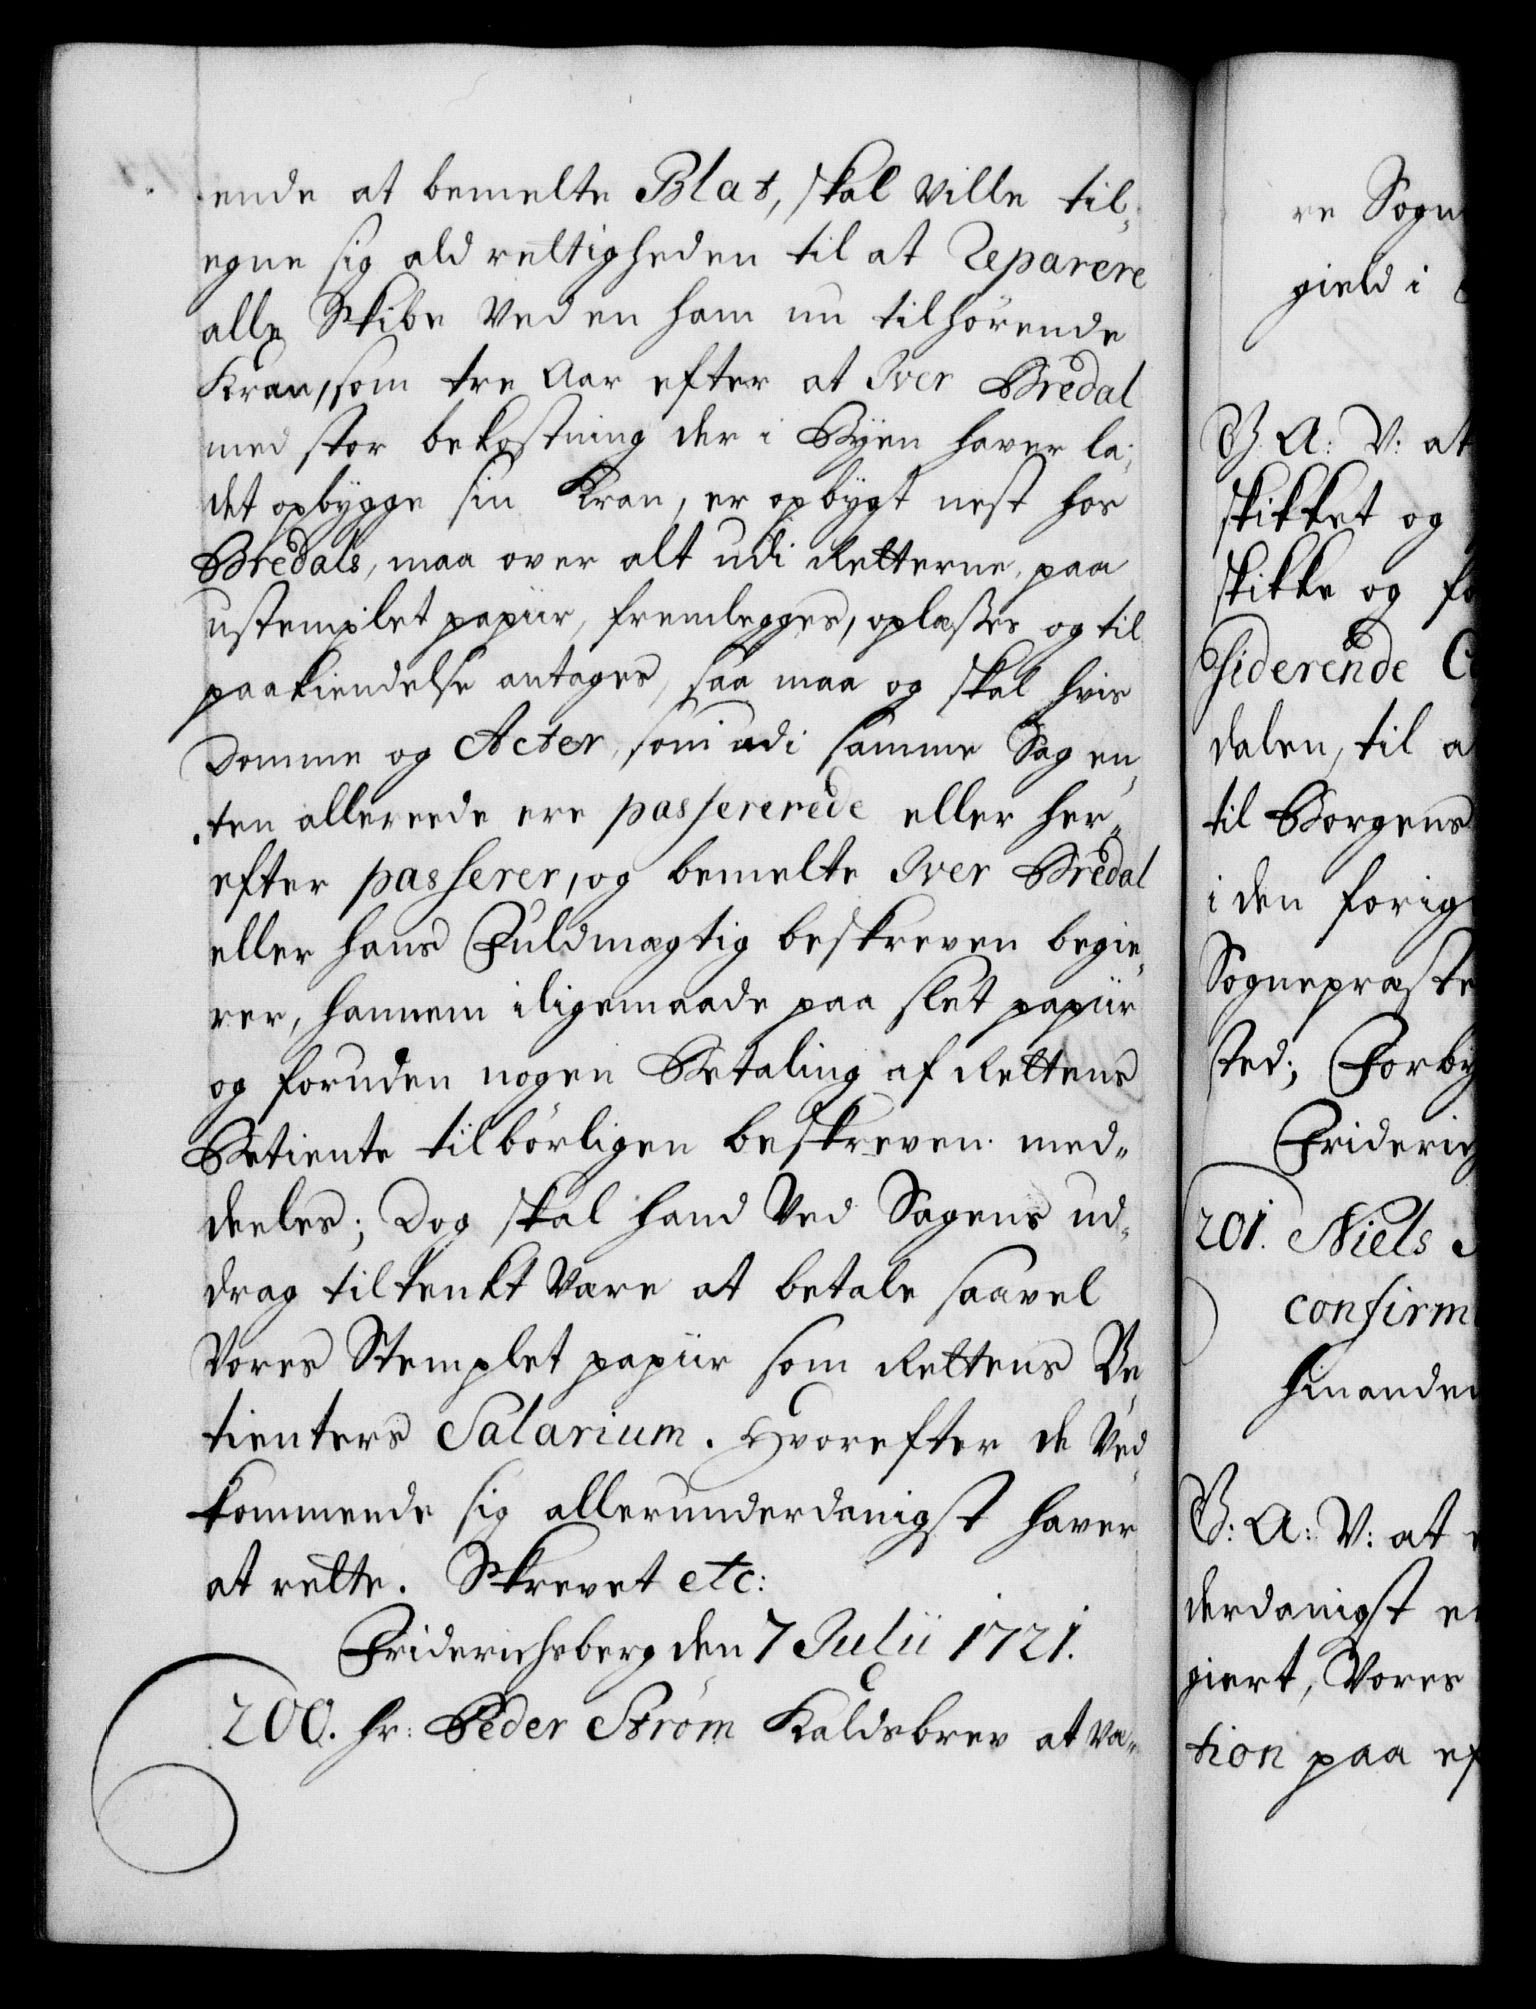 ende at bemelte Blat, skal ville til-
egne sig ald rettigheden til at Reparere
alle Skibe ved en ham nu tilhörende
Kran, som tre Aar efter at Iver Bredal
med stor bekostning der i Byen haver la-
det opbygge sin Kran, er opbygt nest hos
Bredals, maa over alt udi Retterne, paa
ustemplet papiir, fremlegges, oplæses og til
paakiendelse antages, saa maa og skal hvis
Domme og Acter, som udi samme Sag en-
ten allereede ere passererede eller her-
efter passerer, og bemelte Iver Bredal
eller hans Fuldmægtig beskreven begie-
rer, hannem iligemaade paa slet papiir
og foruden nogen Betaling af Rettens
Betiente tilbörligen beskreven med-
deeles; Dog skal hand ved Sagens ud-
drag tiltenkt være at betale saavel
Vores Stemplet papiir som Rettens Be-
tienters Salarium. Hvorefter de ved-
kommende sig allerunderdanigst haver
at rette. Skrevet etc:
Friderichsberg den 7 Julii 1721.
200. hr: Peder Strøm Kaldsbrev at væ-
re Sogn
gield i
G. A: V: at
skikket og
skikke og fo
siderende C
dalen, til a
til Borgens
i den forig
Sognepræste
sted; Forby
Friderich
201. Niels
confirm
hinanden
G: A: V: at
derdanigst er
giert, Vores
tion paa ef